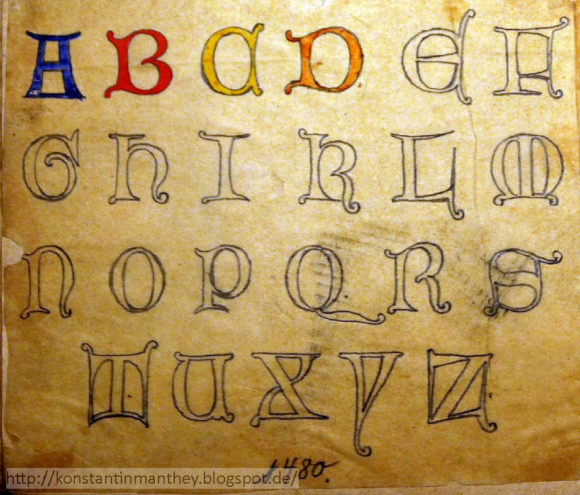 A B C D E F
G H I K L M
N O P Q R S
T U X Y Z
1480.
http://konstantinmanthey.blogspot.de/